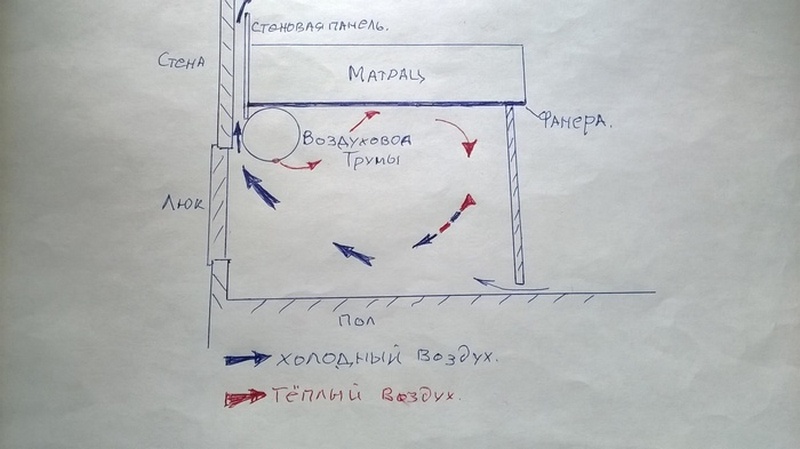 Стеновая панель.
Стена
Матрац
Фанера.
Воздуховод
Трумы
Люк
Пол
Холодный воздух.
Тёплый воздух.